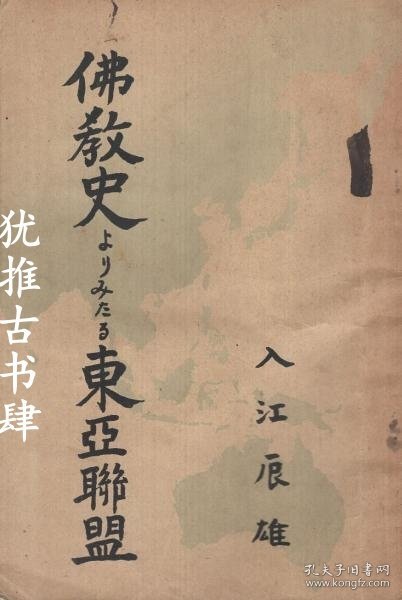 佛教史よりみたる東亞聯盟
入江辰雄
犹推古书肆
孔夫子旧书网
www.kongfz.com